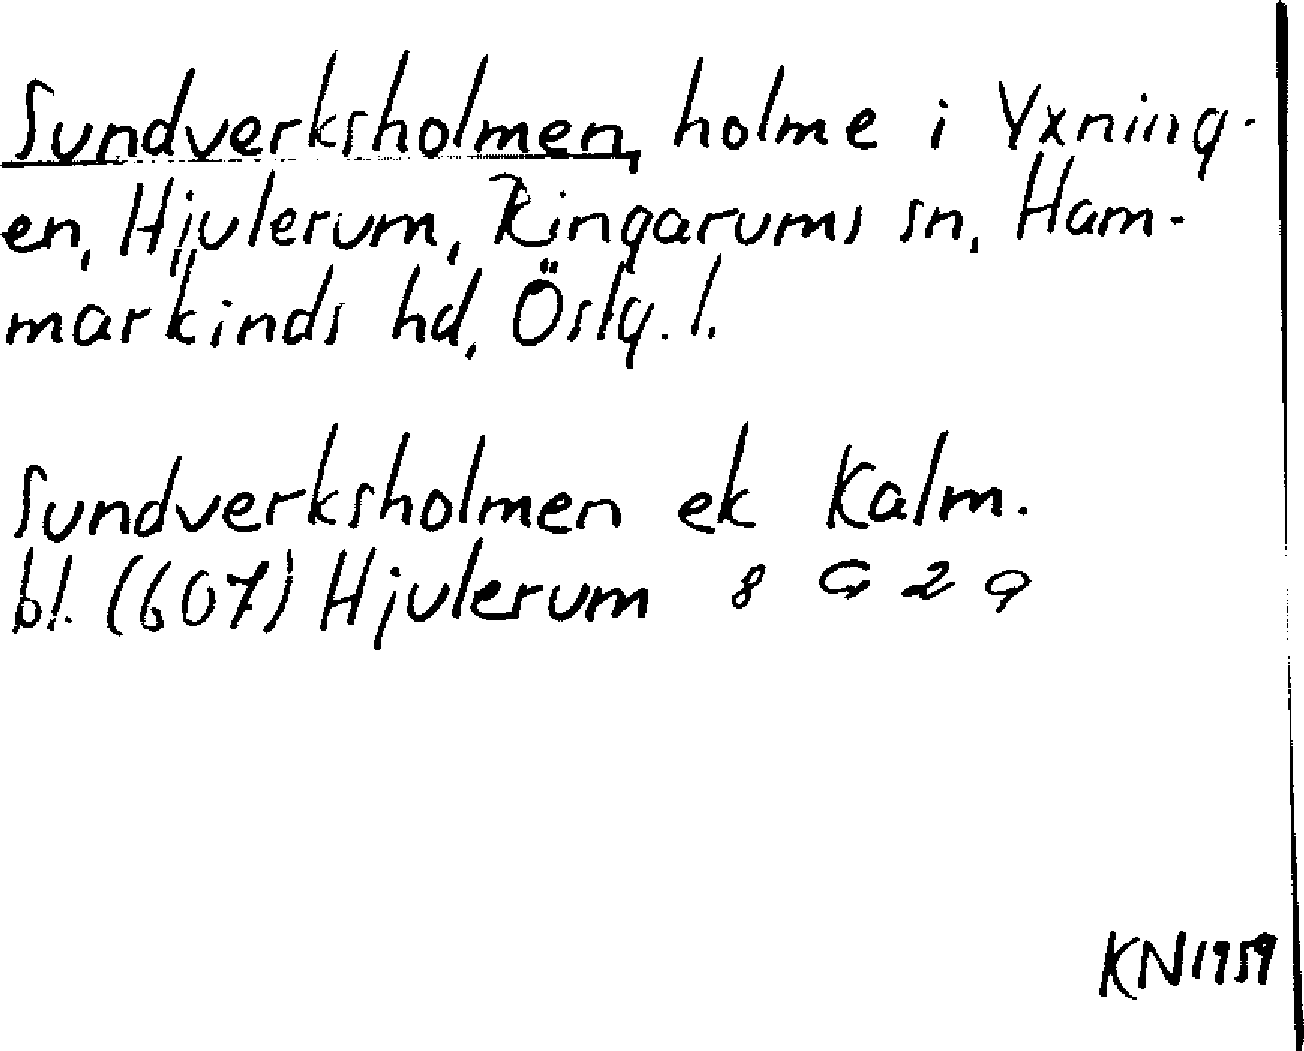 Sundverksholmen, holme i Yxning-
en, Hjulerum, Ringarums sn, Ham-
markinds hd, Östg. l.
Sundverksholmen ek Kalm.
bl. (607) Hjulerum 8 G 2 a
KN1959